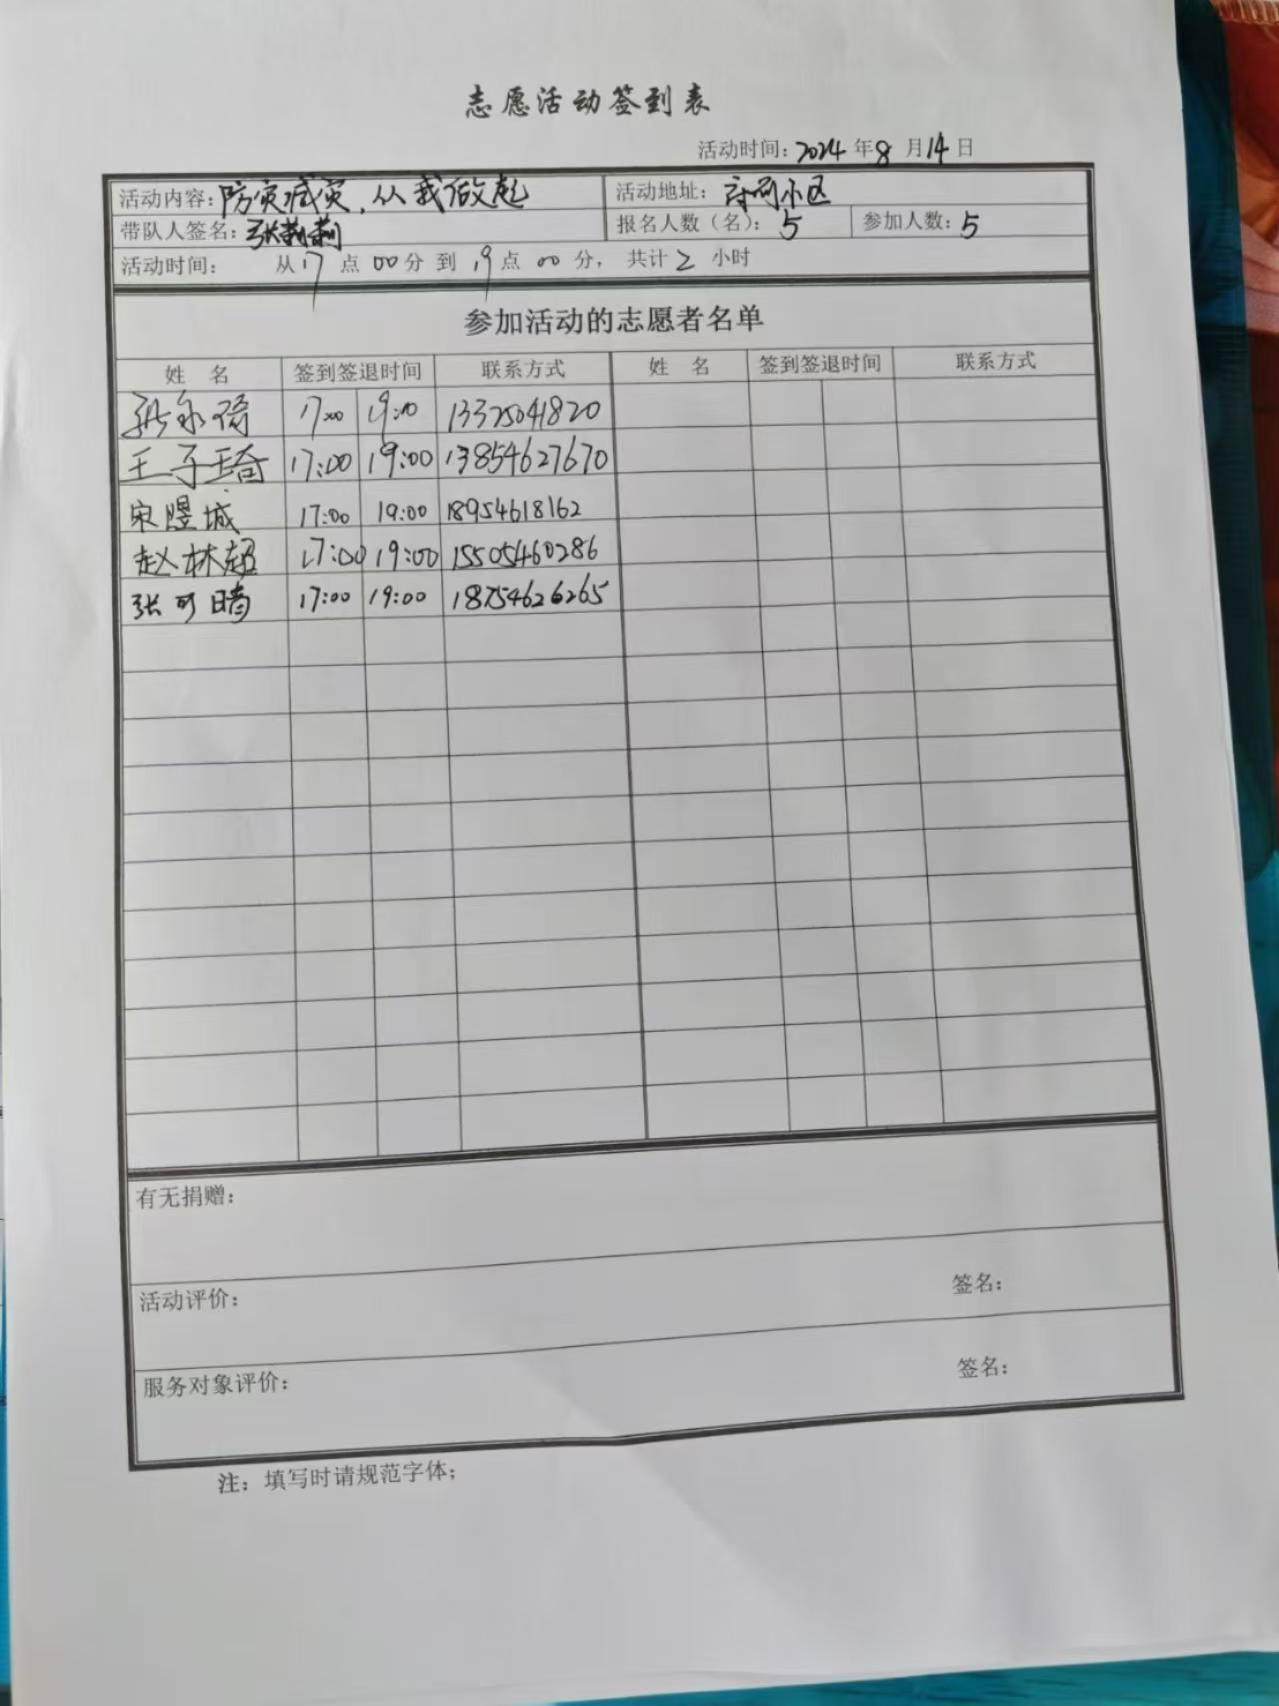 志愿活动签到表
活动时间：2024年8月14日
活动内容：防灾减灾，从我做起 活动地址：小区
带队人签名：张莉莉 报名人数（名）：5 参加人数：5
活动时间： 从17点00分到19点00分，共计2小时
参加活动的志愿者名单
姓 名 签到签退时间 联系方式 姓 名 签到签退时间 联系方式
张永 17:00 19:00 13325041820
王子琦 17:00 19:00 13854627670
宋煜城 17:00 19:00 18954618162
赵林超 17:00 19:00 15505460286
张可晴 17:00 19:00 18754626265
有无捐赠：
活动评价： 签名：
服务对象评价： 签名：
注：填写时请规范字体；